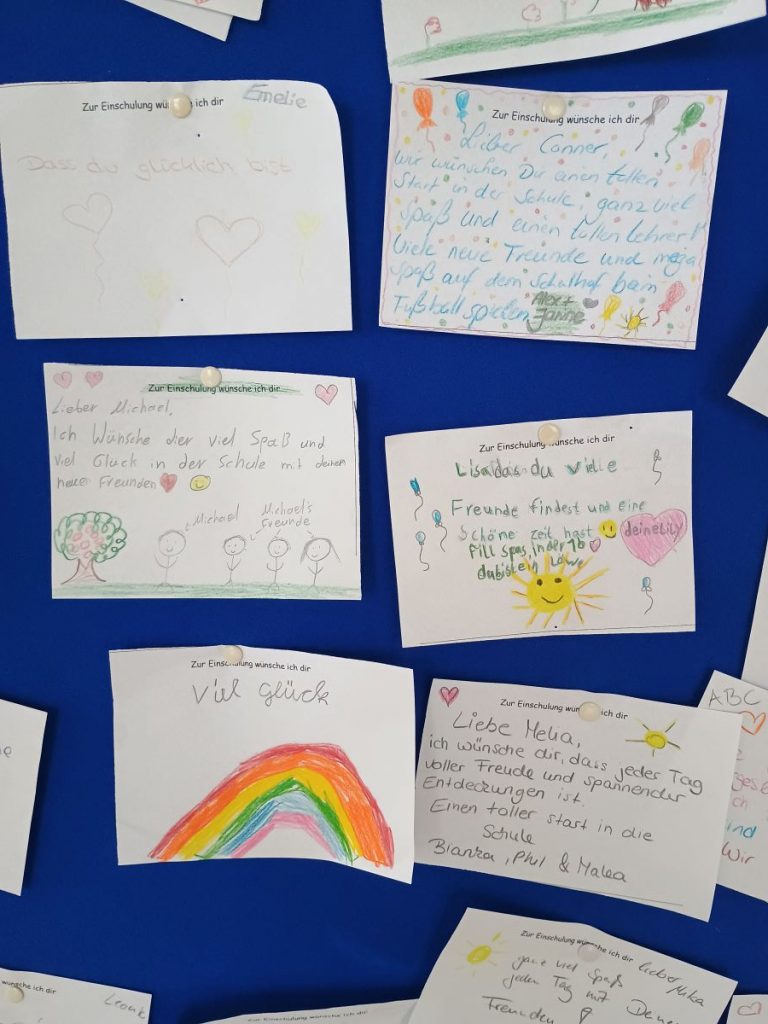 Zur Einschulung wünsche ich dir
Emelie
Dass du glücklich bist
Zur Einschulung wünsche ich dir
Lieber Conner,
wir wünschen Dir einen tollen
Start in der Schule, ganz viel
Spaß und einen tollen Lehrer!
Viele neue Freunde und mega
Spaß auf dem Schulhof beim
Fußball spielen
Alex +
Janine
Zur Einschulung wünsche ich dir
Lieber Michael,
Ich Wünsche dier viel Spaß und
viel Glück in der Schule mit deinen
neuen Freunden
Michael
Michael's
Freunde
Zur Einschulung wünsche ich dir
Lisa das du viele
Freunde findest und eine
Schöne zeit hast
deine Lily
fill spas in der 1b
du bist ein Löwe
Zur Einschulung wünsche ich dir
Viel Glück
Zur Einschulung wünsche ich dir
Liebe Melia,
ich wünsche dir, dass jeder Tag
voller Freude und spannender
Entdeckungen ist.
Einen toller start in die
Schule
Bianka, Phil & Malea
ABC
ich
sind
Wir
Zur Einschulung wünsche ich dir
lieber Mika
ganz viel Spaß
jeden Tag mit
Freunden
wünsche ich dir
Zur Einschulung wünsche ich dir